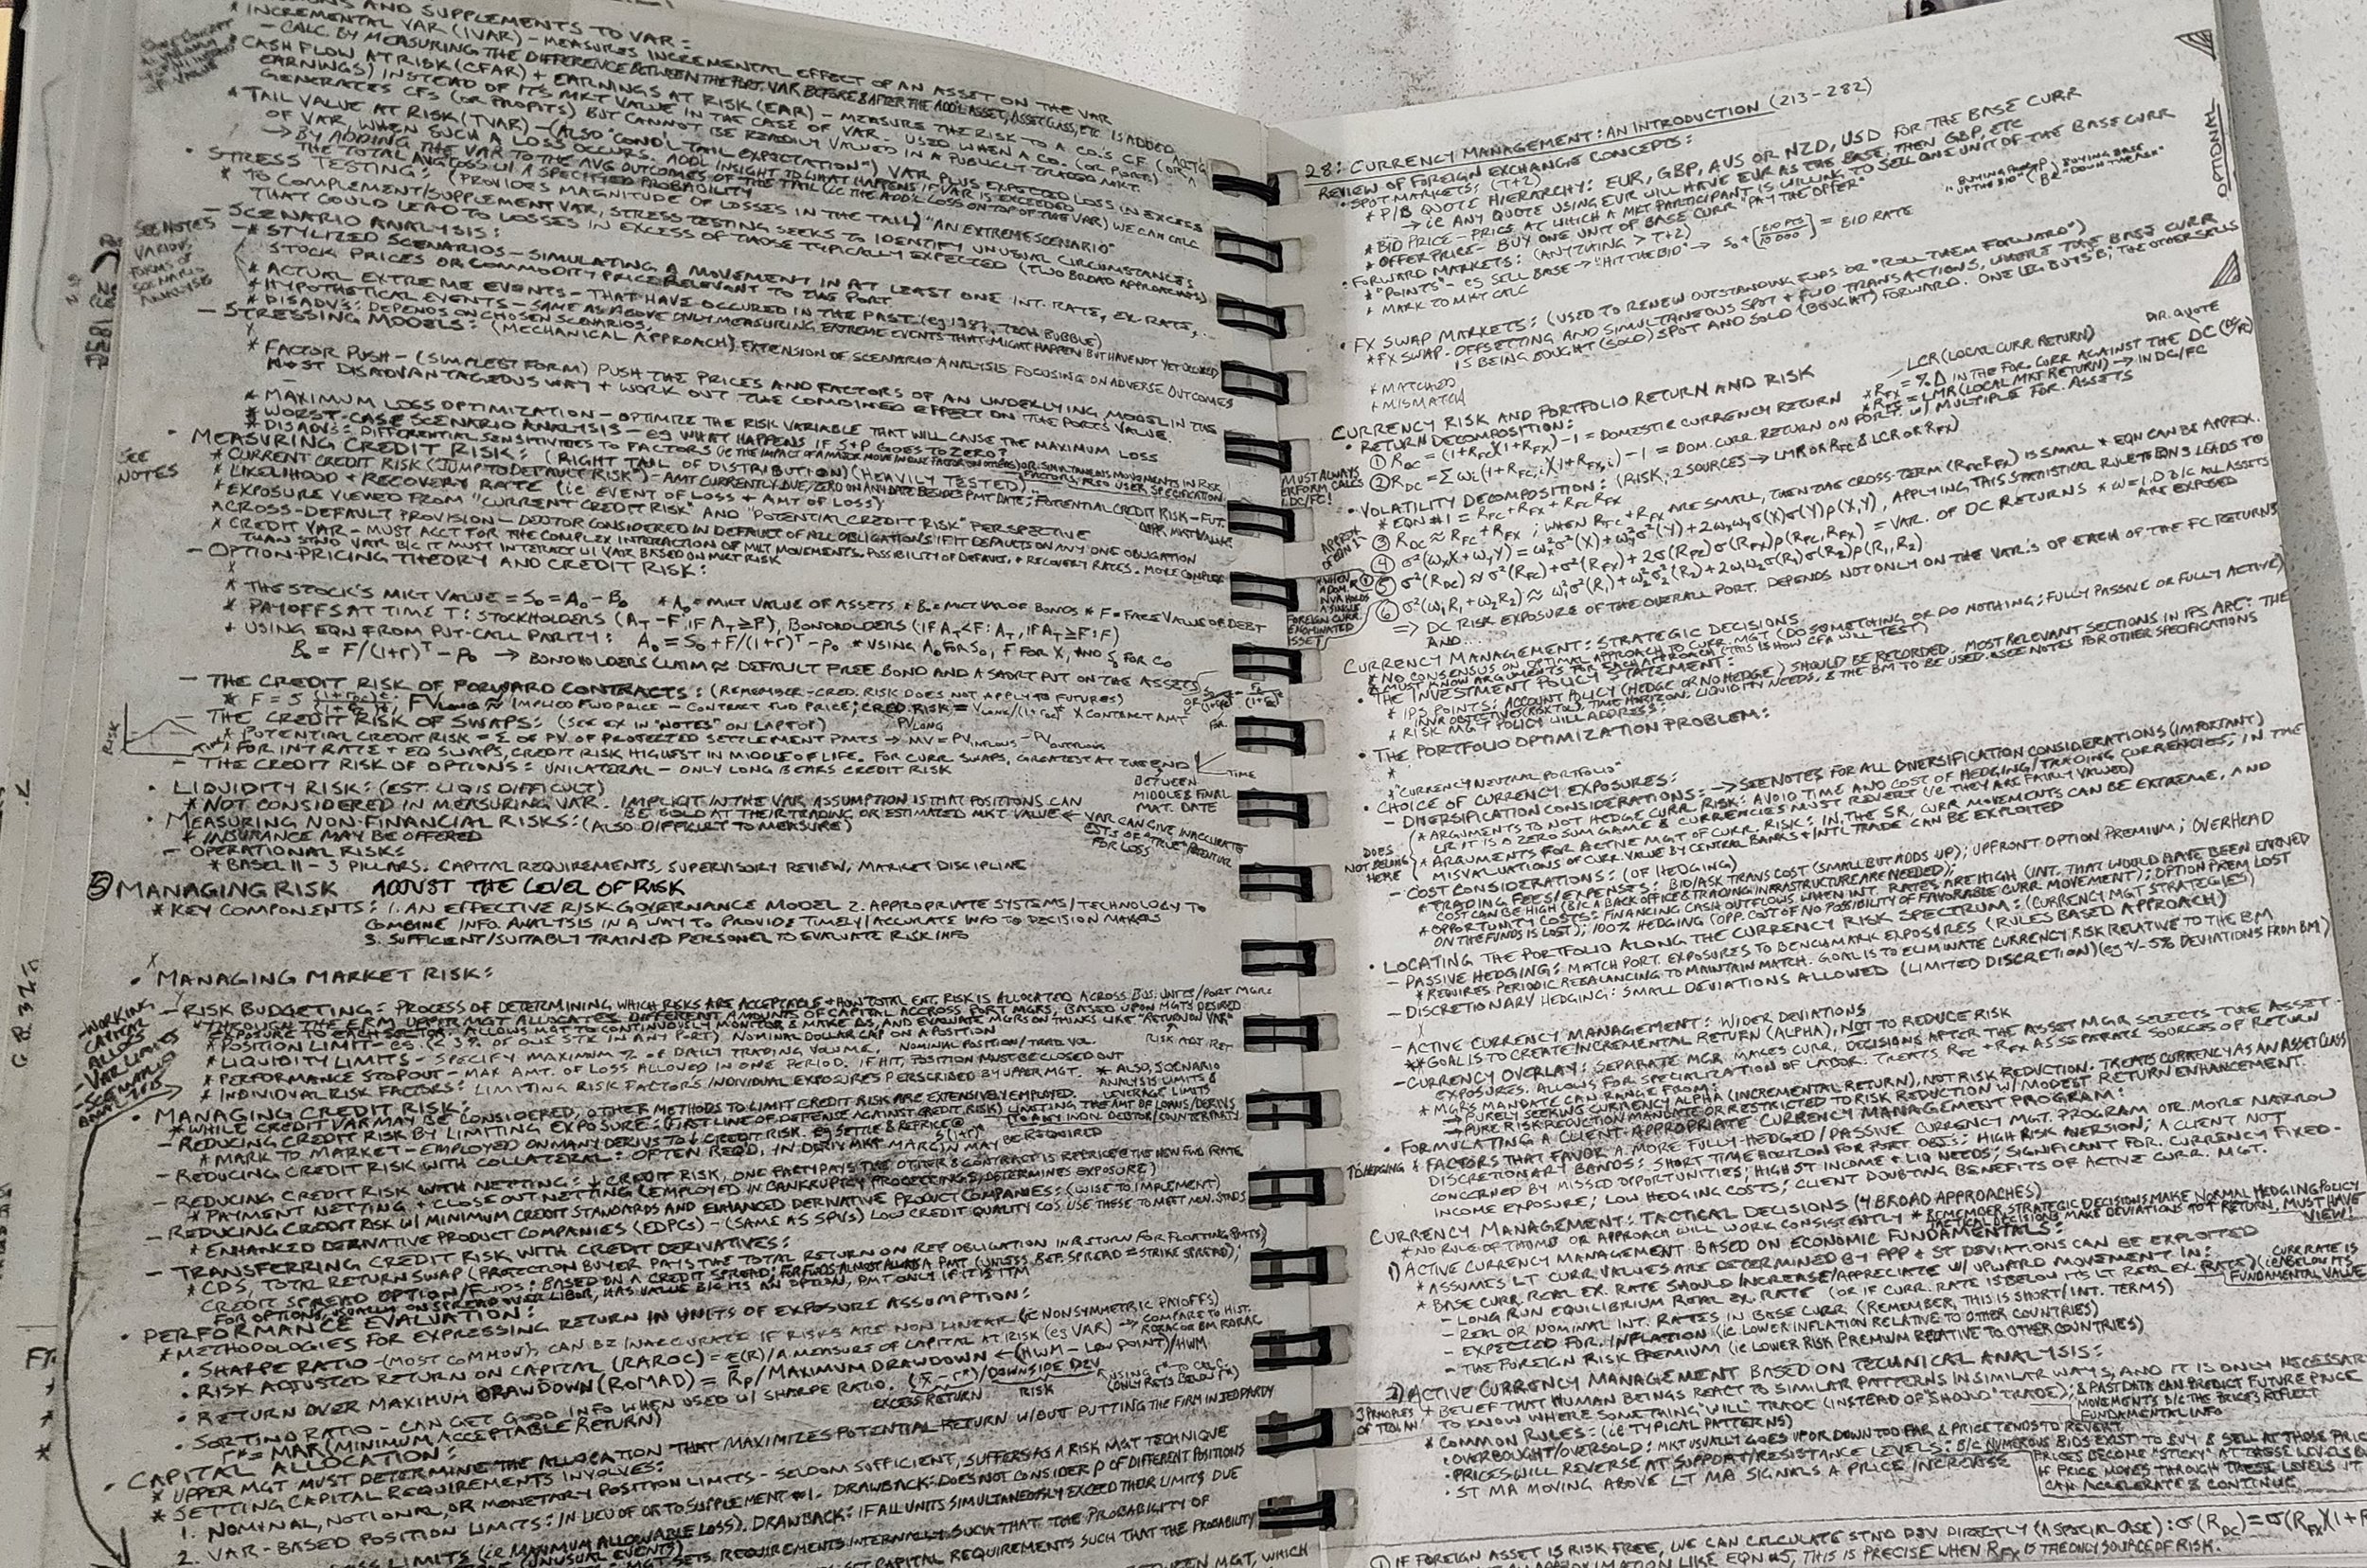 IONS AND SUPPLEMENTS TO VAR:
* INCREMENTAL VAR (IVAR) - MEASURES INCREMENTAL EFFECT OF AN ASSET ON THE VAR
- CALC. BY MEASURING THE DIFFERENCE BETWEEN THE PORT. VAR BEFORE & AFTER THE ADD'L ASSET, ASSET CLASS, ETC IS ADDED
* CASH FLOW AT RISK (CFAR) + EARNINGS AT RISK (EAR) - MEASURE THE RISK TO A CO.'S CF (OR
EARNINGS) INSTEAD OF IT'S MKT VALUE IN THE CASE OF VAR. USED WHEN A CO. (OR PORT)
GENERATES CFS (OR PROFITS) BUT CANNOT BE READILY VALUED IN A PUBLICLY TRADED MKT.
* TAIL VALUE AT RISK (TVAR) - (ALSO "COND'L TAIL EXPECTATION") VAR PLUS EXPECTED LOSS IN EXCESS
OF VAR, WHEN SUCH A LOSS OCCURS. ADD'L INSIGHT TO WHAT HAPPENS IF VAR IS EXCEEDED
→ BY ADDING THE VAR TO THE AVG OUTCOMES OF THE TAIL (IE THE ADD'L LOSS ON TOP OF THE VAR) WE CAN CALC
THE TOTAL AVG LOSS W/ A SPECIFIED PROBABILITY
• STRESS TESTING: (PROVIDES MAGNITUDE OF LOSSES IN THE TAIL) "AN EXTREME SCENARIO"
* TO COMPLEMENT/SUPPLEMENT VAR, STRESS TESTING SEEKS TO IDENTIFY UNUSUAL CIRCUMSTANCES
THAT COULD LEAD TO LOSSES IN EXCESS OF THOSE TYPICALLY EXPECTED (TWO BROAD APPROACHES)
- SCENARIO ANALYSIS:
* STYLIZED SCENARIOS - SIMULATING A MOVEMENT IN AT LEAST ONE INT. RATE, EX. RATE,
STOCK PRICES OR COMMODITY PRICE RELEVANT TO THE PORT
* ACTUAL EXTREME EVENTS - THAT HAVE OCCURED IN THE PAST (eg 1987, TECH BUBBLE)
* HYPOTHETICAL EVENTS - SAME AS ABOVE ONLY MEASURING EXTREME EVENTS THAT MIGHT HAPPEN BUT HAVE NOT YET OCCURED
* DISADV: DEPENDS ON CHOSEN SCENARIOS.
SEE NOTES
VARIOUS
FORMS OF
SCENARIO
ANALYSIS
- STRESSING MODELS: (MECHANICAL APPROACH) EXTENSION OF SCENARIO ANALYSIS FOCUSING ON ADVERSE OUTCOMES
* FACTOR PUSH - (SIMPLEST FORM) PUSH THE PRICES AND FACTORS OF AN UNDERLYING MODEL IN THE
MOST DISADVANTAGEOUS WAY + WORK OUT THE COMBINED EFFECT ON THE PORT'S VALUE.
* MAXIMUM LOSS OPTIMIZATION - OPTIMIZE THE RISK VARIABLE THAT WILL CAUSE THE MAXIMUM LOSS
* WORST-CASE SCENARIO ANALYSIS - eg WHAT HAPPENS IF S+P GOES TO ZERO?
* DISADV: DIFFERENTIAL SENSITIVITIES TO FACTORS (IE THE IMPACT OF A MAJOR MOVE IN ONE FACTOR ON OTHERS) OR SIMULTANEOUS MOVEMENTS IN RISK
FACTORS, USER SPECIFICATION
• MEASURING CREDIT RISK: (RIGHT TAIL OF DISTRIBUTION) (HEAVILY TESTED)
SEE
NOTES
* CURRENT CREDIT RISK (JUMP TO DEFAULT RISK) - AMT CURRENTLY DUE, ZERO ON ANY DATE BESIDES PMT DATE; POTENTIAL CREDIT RISK - FUT.
* LIKELIHOOD + RECOVERY RATE (IE EVENT OF LOSS + AMT OF LOSS)
* EXPOSURE VIEWED FROM "CURRENT CREDIT RISK" AND "POTENTIAL CREDIT RISK" PERSPECTIVE
* CROSS-DEFAULT PROVISION - DEBTOR CONSIDERED IN DEFAULT OF ALL OBLIGATIONS IF IT DEFAULTS ON ANY ONE OBLIGATION
* CREDIT VAR - MUST ACCT FOR THE COMPLEX INTERACTION OF MKT MOVEMENTS, POSSIBILITY OF DEFAULT, + RECOVERY RATES. MORE COMPLEX
THAN STND VAR B/C IT MUST INTERACT W/ VAR BASED ON MKT RISK
- OPTION-PRICING THEORY AND CREDIT RISK:
* THE STOCK'S MKT VALUE = S₀ = A₀ - B₀ * A₀ = MKT VALUE OF ASSETS * B₀ = MKT VAL OF BONDS * F = FACE VALUE OF DEBT
* PAYOFFS AT TIME T: STOCKHOLDERS (A_T - F, IF A_T ≥ F), BONDHOLDERS (IF A_T < F: A_T, IF A_T ≥ F: F)
* USING EQN FROM PUT-CALL PARITY: A₀ = S₀ + F/(1+r)^T - p₀ * USING A₀ FOR S₀, F FOR X, AND S₀ FOR C₀
B₀ = F/(1+r)^T - p₀ → BONDHOLDERS CLAIM ≈ DEFAULT FREE BOND AND A SHORT PUT ON THE ASSETS
- THE CREDIT RISK OF FORWARD CONTRACTS: (REMEMBER - CRED. RISK DOES NOT APPLY TO FUTURES)
- THE CREDIT RISK OF SWAPS: (SEE EX IN "NOTES" ON LAPTOP)
RISK
* POTENTIAL CREDIT RISK = Σ OF PV OF PROJECTED SETTLEMENT PMTS → MV = PV INFLOWS - PV OUTFLOWS
* FOR INT RATE + EQ SWAPS, CREDIT RISK HIGHEST IN MIDDLE OF LIFE. FOR CURR. SWAPS, GREATEST AT THE END
TIME
BETWEEN
MIDDLE & FINAL
MAT. DATE
- THE CREDIT RISK OF OPTIONS: UNILATERAL - ONLY LONG BEARS CREDIT RISK
• LIQUIDITY RISK: (EST. LIQ IS DIFFICULT)
* NOT CONSIDERED IN MEASURING VAR. IMPLICIT IN THE VAR ASSUMPTION IS THAT POSITIONS CAN
BE SOLD AT THEIR TRADING OR ESTIMATED MKT VALUE ← VAR CAN GIVE INACCURATE
ESTS OF A "TRUE" POTENTIAL
FOR LOSS
• MEASURING NON-FINANCIAL RISKS: (ALSO DIFFICULT TO MEASURE)
* INSURANCE MAY BE OFFERED
- OPERATIONAL RISK:
* BASEL II - 3 PILLARS. CAPITAL REQUIREMENTS, SUPERVISORY REVIEW, MARKET DISCIPLINE
⑤ MANAGING RISK ADJUST THE LEVEL OF RISK
* KEY COMPONENTS: 1. AN EFFECTIVE RISK GOVERNANCE MODEL 2. APPROPRIATE SYSTEMS/TECHNOLOGY TO
COMBINE INFO. ANALYSIS IN A WAY TO PROVIDE TIMELY/ACCURATE INFO TO DECISION MAKERS
3. SUFFICIENT/SUITABLY TRAINED PERSONEL TO EVALUATE RISK INFO
• MANAGING MARKET RISK:
- RISK BUDGETING: PROCESS OF DETERMINING WHICH RISKS ARE ACCEPTABLE + HOW TOTAL ENT. RISK IS ALLOCATED ACROSS BUS. UNITES/PORT MGRS
* THROUGH THE ERM, UPPER MGT ALLOCATES DIFFERENT AMOUNTS OF CAPITAL ACCROSS PORT MGRS, BASED UPON MGT'S DESIRED
EXPOSURE TO EACH SECTOR. ALLOWS MGT TO CONTINUOUSLY MONITOR & MAKE ΔS, AND EVALUATE MGRS ON THINKS LIKE "RETURN ON VAR"
RISK ADJ. RET
* POSITION LIMIT - eg. (≤ 3% OF ONE STK IN ANY PORT) NOMINAL DOLLAR CAP ON A POSITION
* LIQUIDITY LIMITS - SPECIFY MAXIMUM % OF DAILY TRADING VOLUME. NOMINAL POSITION/TRAD VOL.
* PERFORMANCE STOPOUT - MAX AMT. OF LOSS ALLOWED IN ONE PERIOD. IF HIT, POSITION MUST BE CLOSED OUT
* INDIVIDUAL RISK FACTORS: LIMITING RISK FACTORS/INDIVIDUAL EXPOSURES PERSCRIBED BY UPPER MGT. * ALSO, SCENARIO
ANALYSIS LIMITS &
LEVERAGE LIMITS
- WORKING
CAPITAL
ALLOCS
- VAR LIMITS
- SCENARIO
ANALYSIS
• MANAGING CREDIT RISK:
* WHILE CREDIT VAR MAY BE CONSIDERED, OTHER METHODS TO LIMIT CREDIT RISK ARE EXTENSIVELY EMPLOYED.
- REDUCING CREDIT RISK BY LIMITING EXPOSURE: (FIRST LINE OF DEFENSE AGAINST CREDIT RISK) LIMITING THE AMT OF LOANS/DERIVS
TO ANY INDIV. DEBTOR/COUNTERPARTY
* MARK TO MARKET - EMPLOYED ON MANY DERIVS TO ↓ CREDIT RISK. eg SETTLE & REPRICE @
- REDUCING CREDIT RISK WITH COLLATERAL: OFTEN REQD, IN DERIV MKT MARGIN MAY BE REQUIRED
- REDUCING CREDIT RISK WITH NETTING: ↓ CREDIT RISK, ONE PARTY PAYS THE OTHER & CONTRACT IS REPRICED @ NEW FWD RATE
* PAYMENT NETTING + CLOSEOUT NETTING (EMPLOYED IN BANKRUPTCY PROCEEDINGS, DETERMINES EXPOSURE)
- REDUCING CREDIT RISK W/ MINIMUM CREDIT STANDARDS AND ENHANCED DERIVATIVE PRODUCT COMPANIES: (WISE TO IMPLEMENT)
* ENHANCED DERIVATIVE PRODUCT COMPANIES (EDPCs) - (SAME AS SPVs) LOW CREDIT QUALITY COS USE THESE TO MEET MIN. STNDS
- TRANSFERRING CREDIT RISK WITH CREDIT DERIVATIVES:
* CDS, TOTAL RETURN SWAP (PROTECTION BUYER PAYS THE TOTAL RETURN ON REF OBLIGATION IN RETURN FOR FLOATING PMTS)
CREDIT SPREAD OPTION/FWDS: BASED ON A CREDIT SPREAD; FOR FWDS ALMOST ALWAYS A PMT (UNLESS REF. SPREAD = STRIKE SPREAD);
FOR OPTIONS, USUALLY ON SPREAD OVER LIBOR, HAS VALUE B/C ITS AN OPTION, PMT ONLY IF IT IS ITM
• PERFORMANCE EVALUATION:
* METHODOLOGIES FOR EXPRESSING RETURN IN UNITS OF EXPOSURE ASSUMPTION:
• SHARPE RATIO - (MOST COMMON), CAN BE INACCURATE IF RISKS ARE NON LINEAR (IE NONSYMMETRIC PAYOFFS)
• RISK ADJUSTED RETURN ON CAPITAL (RAROC) = E(R)/A MEASURE OF CAPITAL AT RISK (eg VAR) → COMPARE TO HIST.
RORAC OR BM RORAC
• RETURN OVER MAXIMUM DRAWDOWN (ROMAD) = R_P/MAXIMUM DRAWDOWN ← (HWM - LOW POINT)/HWM
• SORTINO RATIO - CAN GET GOOD INFO WHEN USED W/ SHARPE RATIO. (x̄ - r*)/DOWNSIDE DEV USING r* TO CALC.
(ONLY RETS BELOW r*)
EXCESS RETURN RISK
r* = MAR (MINIMUM ACCEPTABLE RETURN)
• CAPITAL ALLOCATION:
* UPPER MGT MUST DETERMINE THE ALLOCATION THAT MAXIMIZES POTENTIAL RETURN W/OUT PUTTING THE FIRM IN JEOPARDY
* SETTING CAPITAL REQUIREMENTS INVOLVES:
1. NOMINAL, NOTIONAL, OR MONETARY POSITION LIMITS - SELDOM SUFFICIENT, SUFFERS AS A RISK MGT TECHNIQUE
2. VAR-BASED POSITION LIMITS: IN LIEU OF OR TO SUPPLEMENT #1. DRAWBACK: DOES NOT CONSIDER ρ OF DIFFERENT POSITIONS
LOSS LIMITS (IE MAXIMUM ALLOWABLE LOSS), DRAWBACK: IF ALL UNITS SIMULTANEOUSLY EXCEED THEIR LIMITS DUE
(UNUSUAL EVENTS)
MGT SETS REQUIREMENTS INTERNALLY SUCH THAT THE PROBABILITY OF
CAPITAL REQUIREMENTS SUCH THAT THE PROBABILITY
MGT, WHICH
28: CURRENCY MANAGEMENT: AN INTRODUCTION (213-282)
OPTIONAL
REVIEW OF FOREIGN EXCHANGE CONCEPTS:
• SPOT MARKETS: (T+2)
* P/B QUOTE HIERARCHY: EUR, GBP, AUS OR NZD, USD FOR THE BASE CURR
→ ie ANY QUOTE USING EUR WILL HAVE EUR AS THE BASE, THEN GBP, ETC
* BID PRICE - PRICE AT WHICH A MKT PARTICIPANT IS WILLING TO SELL ONE UNIT OF THE BASE CURR
* OFFER PRICE - BUY ONE UNIT OF BASE CURR "PAY THE OFFER"
• FORWARD MARKETS: (ANYTHING > T+2)
* "POINTS" - eg SELL BASE → "HIT THE BID" → S₀ + [BID PTS/10 000] = BID RATE
* MARK TO MKT CALC
• FX SWAP MARKETS: (USED TO RENEW OUTSTANDING FWDS OR "ROLL THEM FORWARD")
* FX SWAP - OFFSETTING AND SIMULTANEOUS SPOT + FWD TRANSACTIONS, WHERE THE BASE CURR
IS BEING BOUGHT (SOLD) SPOT AND SOLD (BOUGHT) FORWARD. ONE LEG BUYS B, THE OTHER SELLS
* MATCHED
* MISMATCH
DIR. QUOTE
CURRENCY RISK AND PORTFOLIO RETURN AND RISK
LCR (LOCAL CURR RETURN)
* R_FX = %Δ IN THE FOR. CURR AGAINST THE DC (DC/FC)
* R_FC = LMR (LOCAL MKT RETURN) → IN DC/FC
• RETURN DECOMPOSITION:
① R_DC = (1+R_FC)(1+R_FX) - 1 = DOMESTIC CURRENCY RETURN
② R_DC = Σ ω_i(1+R_FC,i)(1+R_FX,i) - 1 = DOM. CURR. RETURN ON PORT. W/ MULTIPLE FOR. ASSETS
MUST ALWAYS
PERFORM CALCS
DC/FC!
• VOLATILITY DECOMPOSITION: (RISK, 2 SOURCES → LMR OR R_FC & LCR OR R_FX)
* EQN #1 = R_FC + R_FX + R_FC R_FX
③ R_DC ≈ R_FC + R_FX ; WHEN R_FC + R_FX ARE SMALL, THEN THE CROSS-TERM (R_FC R_FX) IS SMALL * EQN CAN BE APPROX.
④ σ²(ω_x X + ω_y Y) = ω_x²σ²(X) + ω_y²σ²(Y) + 2ω_xω_yσ(X)σ(Y)ρ(X,Y), APPLYING THIS STATISTICAL RULE TO EQN 3 LEADS TO
⑤ σ²(R_DC) ≈ σ²(R_FC) + σ²(R_FX) + 2σ(R_FC)σ(R_FX)ρ(R_FC,R_FX) = VAR. OF DC RETURNS * ω = 1.0 B/C ALL ASSETS
ARE EXPOSED
⑥ σ²(ω₁R₁ + ω₂R₂) ≈ ω₁²σ²(R₁) + ω₂²σ²(R₂) + 2ω₁ω₂σ(R₁)σ(R₂)ρ(R₁,R₂)
=> DC RISK EXPOSURE OF THE OVERALL PORT. DEPENDS NOT ONLY ON THE VAR.'S OF EACH OF THE FC RETURNS
AND...
CURRENCY MANAGEMENT: STRATEGIC DECISIONS
* NO CONSENSUS ON OPTIMAL APPROACH TO CURR. MGT (DO SOMETHING OR DO NOTHING; FULLY PASSIVE OR FULLY ACTIVE)
* MUST KNOW ARGUMENTS FOR EACH APPROACH (THIS IS HOW CFA WILL TEST)
• THE INVESTMENT POLICY STATEMENT:
* IPS POINTS: ACCOUNT POLICY (HEDGE OR NO HEDGE) SHOULD BE RECORDED. MOST RELEVANT SECTIONS IN IPS ARE: THE
INVR OBJECTIVES (RISK TOL), TIME HORIZON, LIQUIDITY NEEDS, & THE BM TO BE USED. * SEE NOTES FOR OTHER SPECIFICATIONS
* RISK MGT POLICY WILL ADDRESS:
• THE PORTFOLIO OPTIMIZATION PROBLEM:
* "CURRENCY NEUTRAL PORTFOLIO"
• CHOICE OF CURRENCY EXPOSURES:
- DIVERSIFICATION CONSIDERATIONS: → SEE NOTES FOR ALL DIVERSIFICATION CONSIDERATIONS (IMPORTANT)
* ARGUMENTS TO NOT HEDGE CURR RISK: AVOID TIME AND COST OF HEDGING/TRADING CURRENCIES; IN THE
LR IT IS A ZERO SUM GAME & CURRENCIES MUST REVERT (IE THEY ARE FAIRLY VALUED)
* ARGUMENTS FOR ACTIVE MGT OF CURR. RISK: IN THE SR, CURR MOVEMENTS CAN BE EXTREME, AND
MISVALUATIONS OF CURR. VALUE BY CENTRAL BANKS + INT'L TRADE CAN BE EXPLOITED
DOES
NOT BELONG
HERE
- COST CONSIDERATIONS: (OF HEDGING)
* TRADING FEES/EXPENSES: BID/ASK TRANS COST (SMALL BUT ADDS UP); UPFRONT OPTION PREMIUM; OVERHEAD
COST CAN BE HIGH (B/C A BACK OFFICE & TRADING INFRASTRUCTURE ARE NEEDED);
* OPPORTUNITY COSTS: FINANCING CASH OUTFLOWS WHEN INT. RATES ARE HIGH (INT. THAT WOULD HAVE BEEN EARNED
ON THE FUNDS IS LOST); 100% HEDGING (OPP. COST OF NO POSSIBILITY OF FAVORABLE CURR. MOVEMENT); OPTION PREM LOST
• LOCATING THE PORTFOLIO ALONG THE CURRENCY RISK SPECTRUM: (CURRENCY MGT STRATEGIES)
- PASSIVE HEDGING: MATCH PORT. EXPOSURES TO BENCHMARK EXPOSURES (RULES BASED APPROACH)
* REQUIRES PERIODIC REBALANCING TO MAINTAIN MATCH. GOAL IS TO ELIMINATE CURRENCY RISK RELATIVE TO THE BM
- DISCRETIONARY HEDGING: SMALL DEVIATIONS ALLOWED (LIMITED DISCRETION) (eg +/- 5% DEVIATIONS FROM BM)
- ACTIVE CURRENCY MANAGEMENT: WIDER DEVIATIONS
** GOAL IS TO CREATE INCREMENTAL RETURN (ALPHA), NOT TO REDUCE RISK
- CURRENCY OVERLAY: SEPARATE MGR MAKES CURR. DECISIONS AFTER THE ASSET MGR SELECTS THE ASSET
EXPOSURES. ALLOWS FOR SPECIALIZATION OF LABOR. TREATS R_FC + R_FX AS SEPARATE SOURCES OF RETURN
* MGRS MANDATE CAN RANGE FROM:
→ PURELY SEEKING CURRENCY ALPHA (INCREMENTAL RETURN), NOT RISK REDUCTION. TREATS CURRENCY AS AN ASSET CLASS
→ PURE RISK REDUCTION MANDATE OR RESTRICTED TO RISK REDUCTION W/ MODEST RETURN ENHANCEMENT.
• FORMULATING A CLIENT-APPROPRIATE CURRENCY MANAGEMENT PROGRAM:
* FACTORS THAT FAVOR A MORE FULLY-HEDGED/PASSIVE CURRENCY MGT. PROGRAM OR MORE NARROW
DISCRETIONARY BANDS: SHORT TIME HORIZON FOR PORT OBJS; HIGH RISK AVERSION; A CLIENT NOT
CONCERNED BY MISSED OPPORTUNITIES; HIGH ST INCOME + LIQ NEEDS; SIGNIFICANT FOR. CURRENCY FIXED-
INCOME EXPOSURE; LOW HEDGING COSTS; CLIENT DOUBTING BENEFITS OF ACTIVE CURR. MGT.
CURRENCY MANAGEMENT: TACTICAL DECISIONS (4 BROAD APPROACHES)
* NO RULE OF THUMB OR APPROACH WILL WORK CONSISTENTLY * REMEMBER, STRATEGIC DECISIONS MAKE NORMAL HEDGING POLICY
TACTICAL DECISIONS MAKE DEVIATIONS TO ↑ RETURN, MUST HAVE
VIEW!
1) ACTIVE CURRENCY MANAGEMENT BASED ON ECONOMIC FUNDAMENTALS:
* ASSUMES LT CURR VALUES ARE DETERMINED BY PPP & ST DEVIATIONS CAN BE EXPLOITED
* BASE CURR. REAL EX. RATE SHOULD INCREASE/APPRECIATE W/ UPWARD MOVEMENT IN:
- LONG RUN EQUILIBRIUM REAL EX. RATE (OR IF CURR. RATE IS BELOW ITS LT REAL EX. RATE) (IE CURR RATE IS
BELOW ITS
FUNDAMENTAL VALUE
- REAL OR NOMINAL INT. RATES IN BASE CURR (REMEMBER, THIS IS SHORT/INT. TERMS)
- EXPECTED FOR. INFLATION (IE LOWER INFLATION RELATIVE TO OTHER COUNTRIES)
- THE FOREIGN RISK PREMIUM (IE LOWER RISK PREMIUM RELATIVE TO OTHER COUNTRIES)
2) ACTIVE CURRENCY MANAGEMENT BASED ON TECHNICAL ANALYSIS:
3 PRINCIPLES
* BELIEF THAT HUMAN BEINGS REACT TO SIMILAR PATTERNS IN SIMILAR WAYS, AND IT IS ONLY NECESSARY
TO KNOW WHERE SOMETHING "WILL" TRADE (INSTEAD OF "SHOULD" TRADE); & PAST DATA CAN PREDICT FUTURE PRICE
MOVEMENTS B/C THE PRICES REFLECT
FUNDAMENTAL INFO
* COMMON RULES: (IE TYPICAL PATTERNS)
• OVERBOUGHT/OVERSOLD: MKT USUALLY GOES UP OR DOWN TOO FAR & PRICE TENDS TO REVERT
• PRICES WILL REVERSE AT SUPPORT/RESISTANCE LEVELS: B/C NUMEROUS BIDS EXIST TO BUY & SELL AT THOSE PRICE
PRICES BECOME "STICKY" AT THOSE LEVELS
IF PRICE MOVES THROUGH THESE LEVELS IT
CAN ACCELERATE & CONTINUE
• ST MA MOVING ABOVE LT MA SIGNALS A PRICE INCREASE
① IF FOREIGN ASSET IS RISK FREE, WE CAN CALCULATE STND DEV DIRECTLY (A SPECIAL CASE): σ(R_DC) = σ(R_FX)(1+R
APPROXIMATION LIKE EQN #5, THIS IS PRECISE WHEN R_FX IS THE ONLY SOURCE OF RISK.